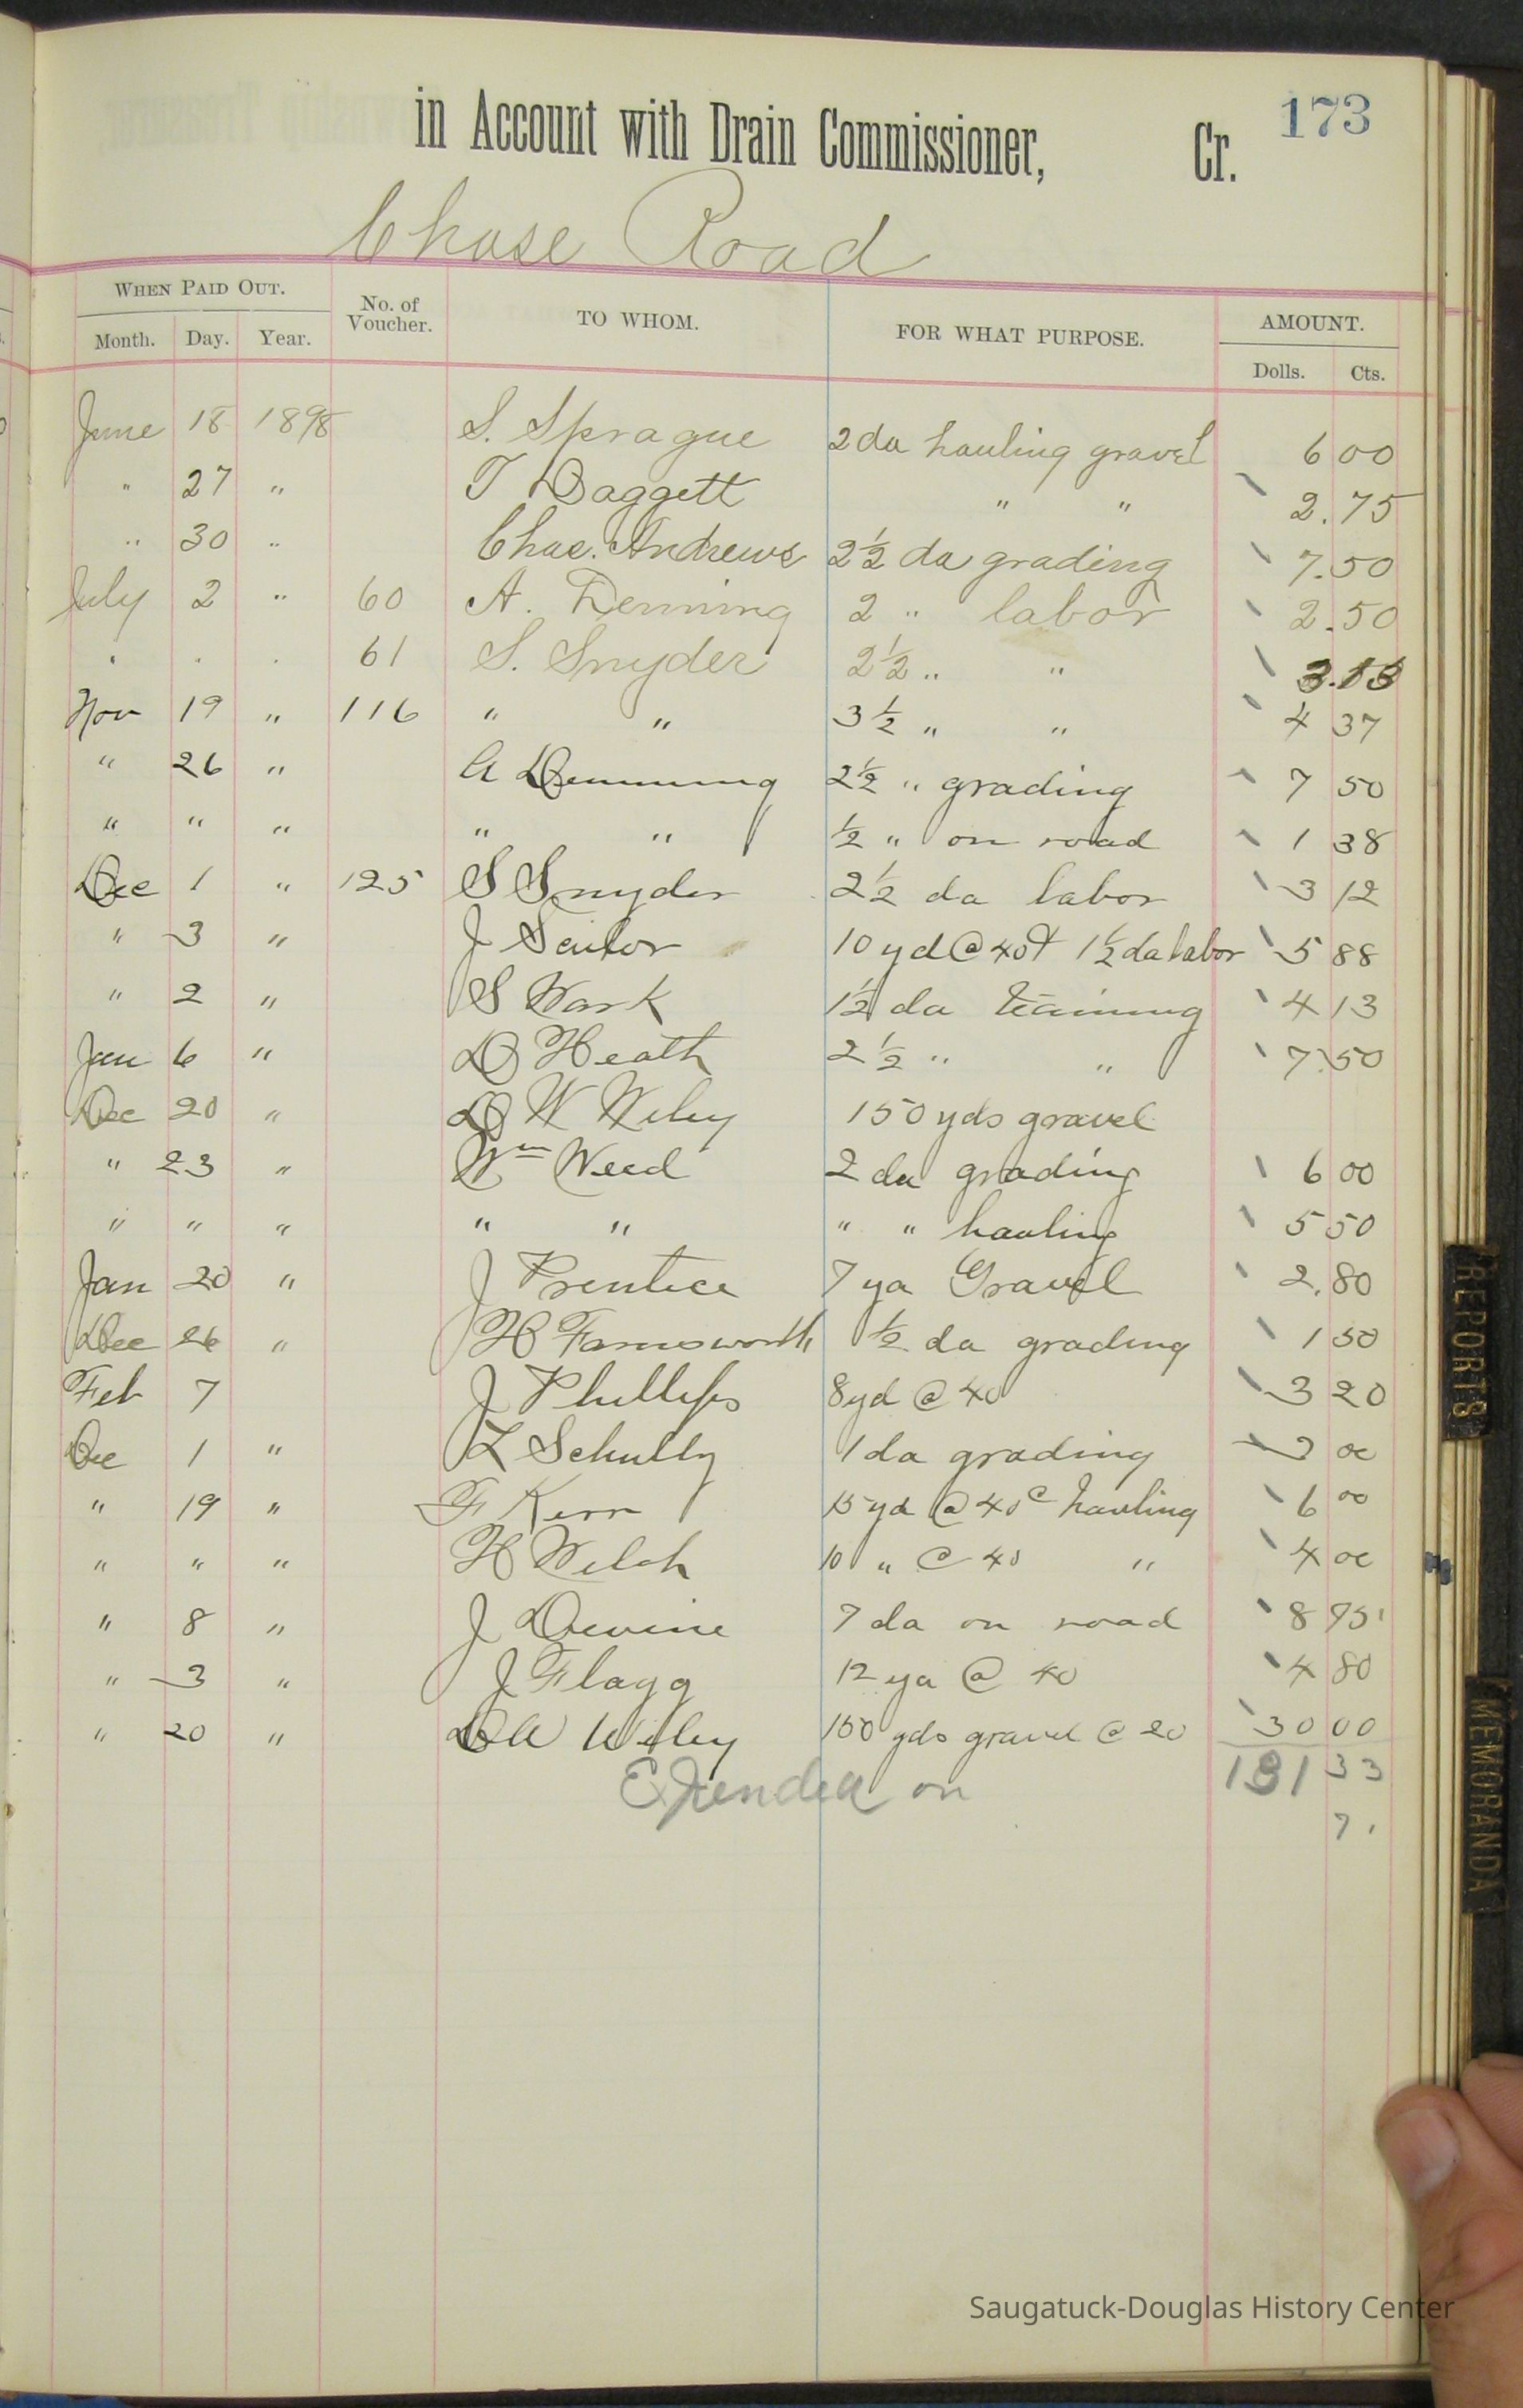 173
in Account with Drain Commissioner, Cr.
Chase Road
WHEN PAID OUT. No. of Voucher. TO WHOM. FOR WHAT PURPOSE. AMOUNT.
Month. Day. Year. Dolls. Cts.
June 18 1898 S. Sprague 2 da hauling gravel 6 00
" 27 " T Daggett " " 2.75
" 30 " Chas. Andrews 2½ da grading 7.50
July 2 " 60 A. Demming 2 " labor 2.50
" " " 61 S. Snyder 2½ " " 3.13
Nov 19 " 116 " " 3½ " " 4 37
" 26 " A Demming 2½ " grading 7 50
" " " " " ½ " on road 1 38
Dec 1 " 125 S Snyder 2½ da labor 3 12
" 3 " J 10 yd @ 40 & 1½ da labor 5 88
" 2 " S Wark 1½ da teaming 4 13
Jan 6 " D Heath 2½ " " 7.50
Dec 20 " D W Wiley 150 yds gravel
" 23 " Wm Weed 2 da grading 6 00
" " " " " " " hauling 5 50
Jan 20 " J Prentice 7 yd Gravel 2.80
Dec 26 " H Farnsworth ½ da grading 1 50
Feb 7 J Phillips 8 yd @ 40 3 20
Dec 1 " L 1 da grading 3 00
" 19 " F Kerr 15 yd @ 40c hauling 6 00
" " " H Welch 10 " @ 40 " 4 00
" 8 " J Devine 7 da on road 8 75
" 3 " J Flagg 12 yd @ 40 4 80
" 20 " D W Wiley 150 yds gravel @ 20 30 00
on 131 33
7
REPORTS
MEMORANDA
Saugatuck-Douglas History Center